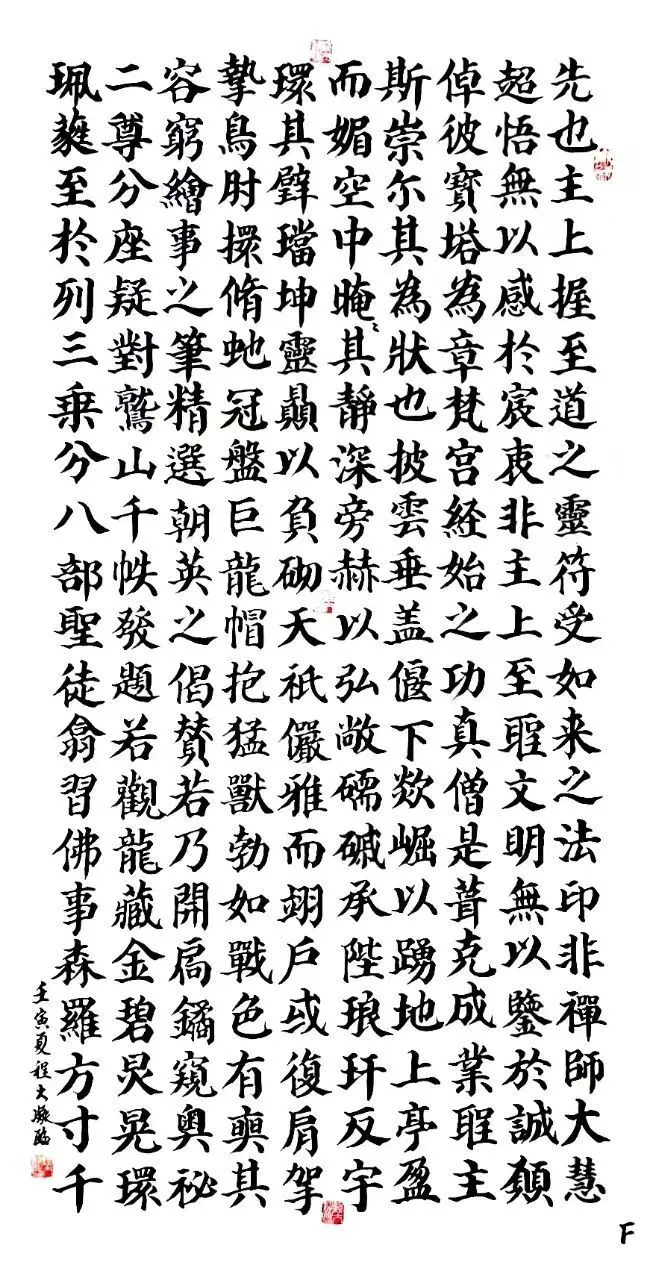 先也主上握至道之靈符受如来之法印非禪師大慧
超悟無以感於宸衷非主上至聖文明無以鑒於誠願
倬彼寶塔為章梵宫経始之功真僧是葺克成業聖主
斯崇尓其為狀也披雲垂盖偃下欻崛以踴地上亭盈
而媚空中晻〻其靜深旁赫以弘敞礝磩承陛琅玕反宇
環其璧璫坤靈贔以負砌天祇儼雅而翊户或復肩挐
摯鳥肘擐脩虵冠盤巨龍帽抱猛獸勃如戰色有奭其
容窮繪事之筆精選朝英之偈贊若乃開扃鐍窺奥祕
二尊分座疑對鷲山千帙發題若觀龍藏金碧炅晃環
珮蕤至於列三乗分八部聖徒翕習佛事森羅方寸千
壬寅夏程大凝臨
F